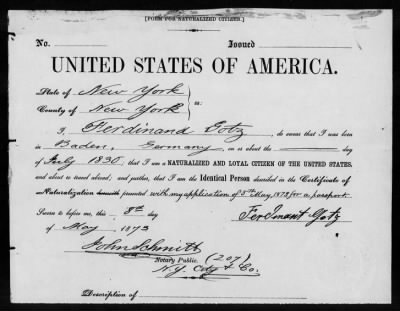 [FORM FOR NATURALIZED CITIZEN.]
No. Issued
UNITED STATES OF AMERICA.
State of New York
County of New York } ss:
I, Ferdinand Gotz, do swear that I was born
in Baden, Germany, on or about the day
of July 1830; that I am a NATURALIZED AND LOYAL CITIZEN OF THE UNITED STATES,
and about to travel abroad; and further, that I am the Identical Person described in the Certificate of
Naturalization herewith presented with my application of 5th May, 1873 for a passport.
Sworn to before me, this 8th day
Ferdinant Gotz
of May 1873
John Schmitt
Notary Public. (207)
N.Y. City & Co.
Description of